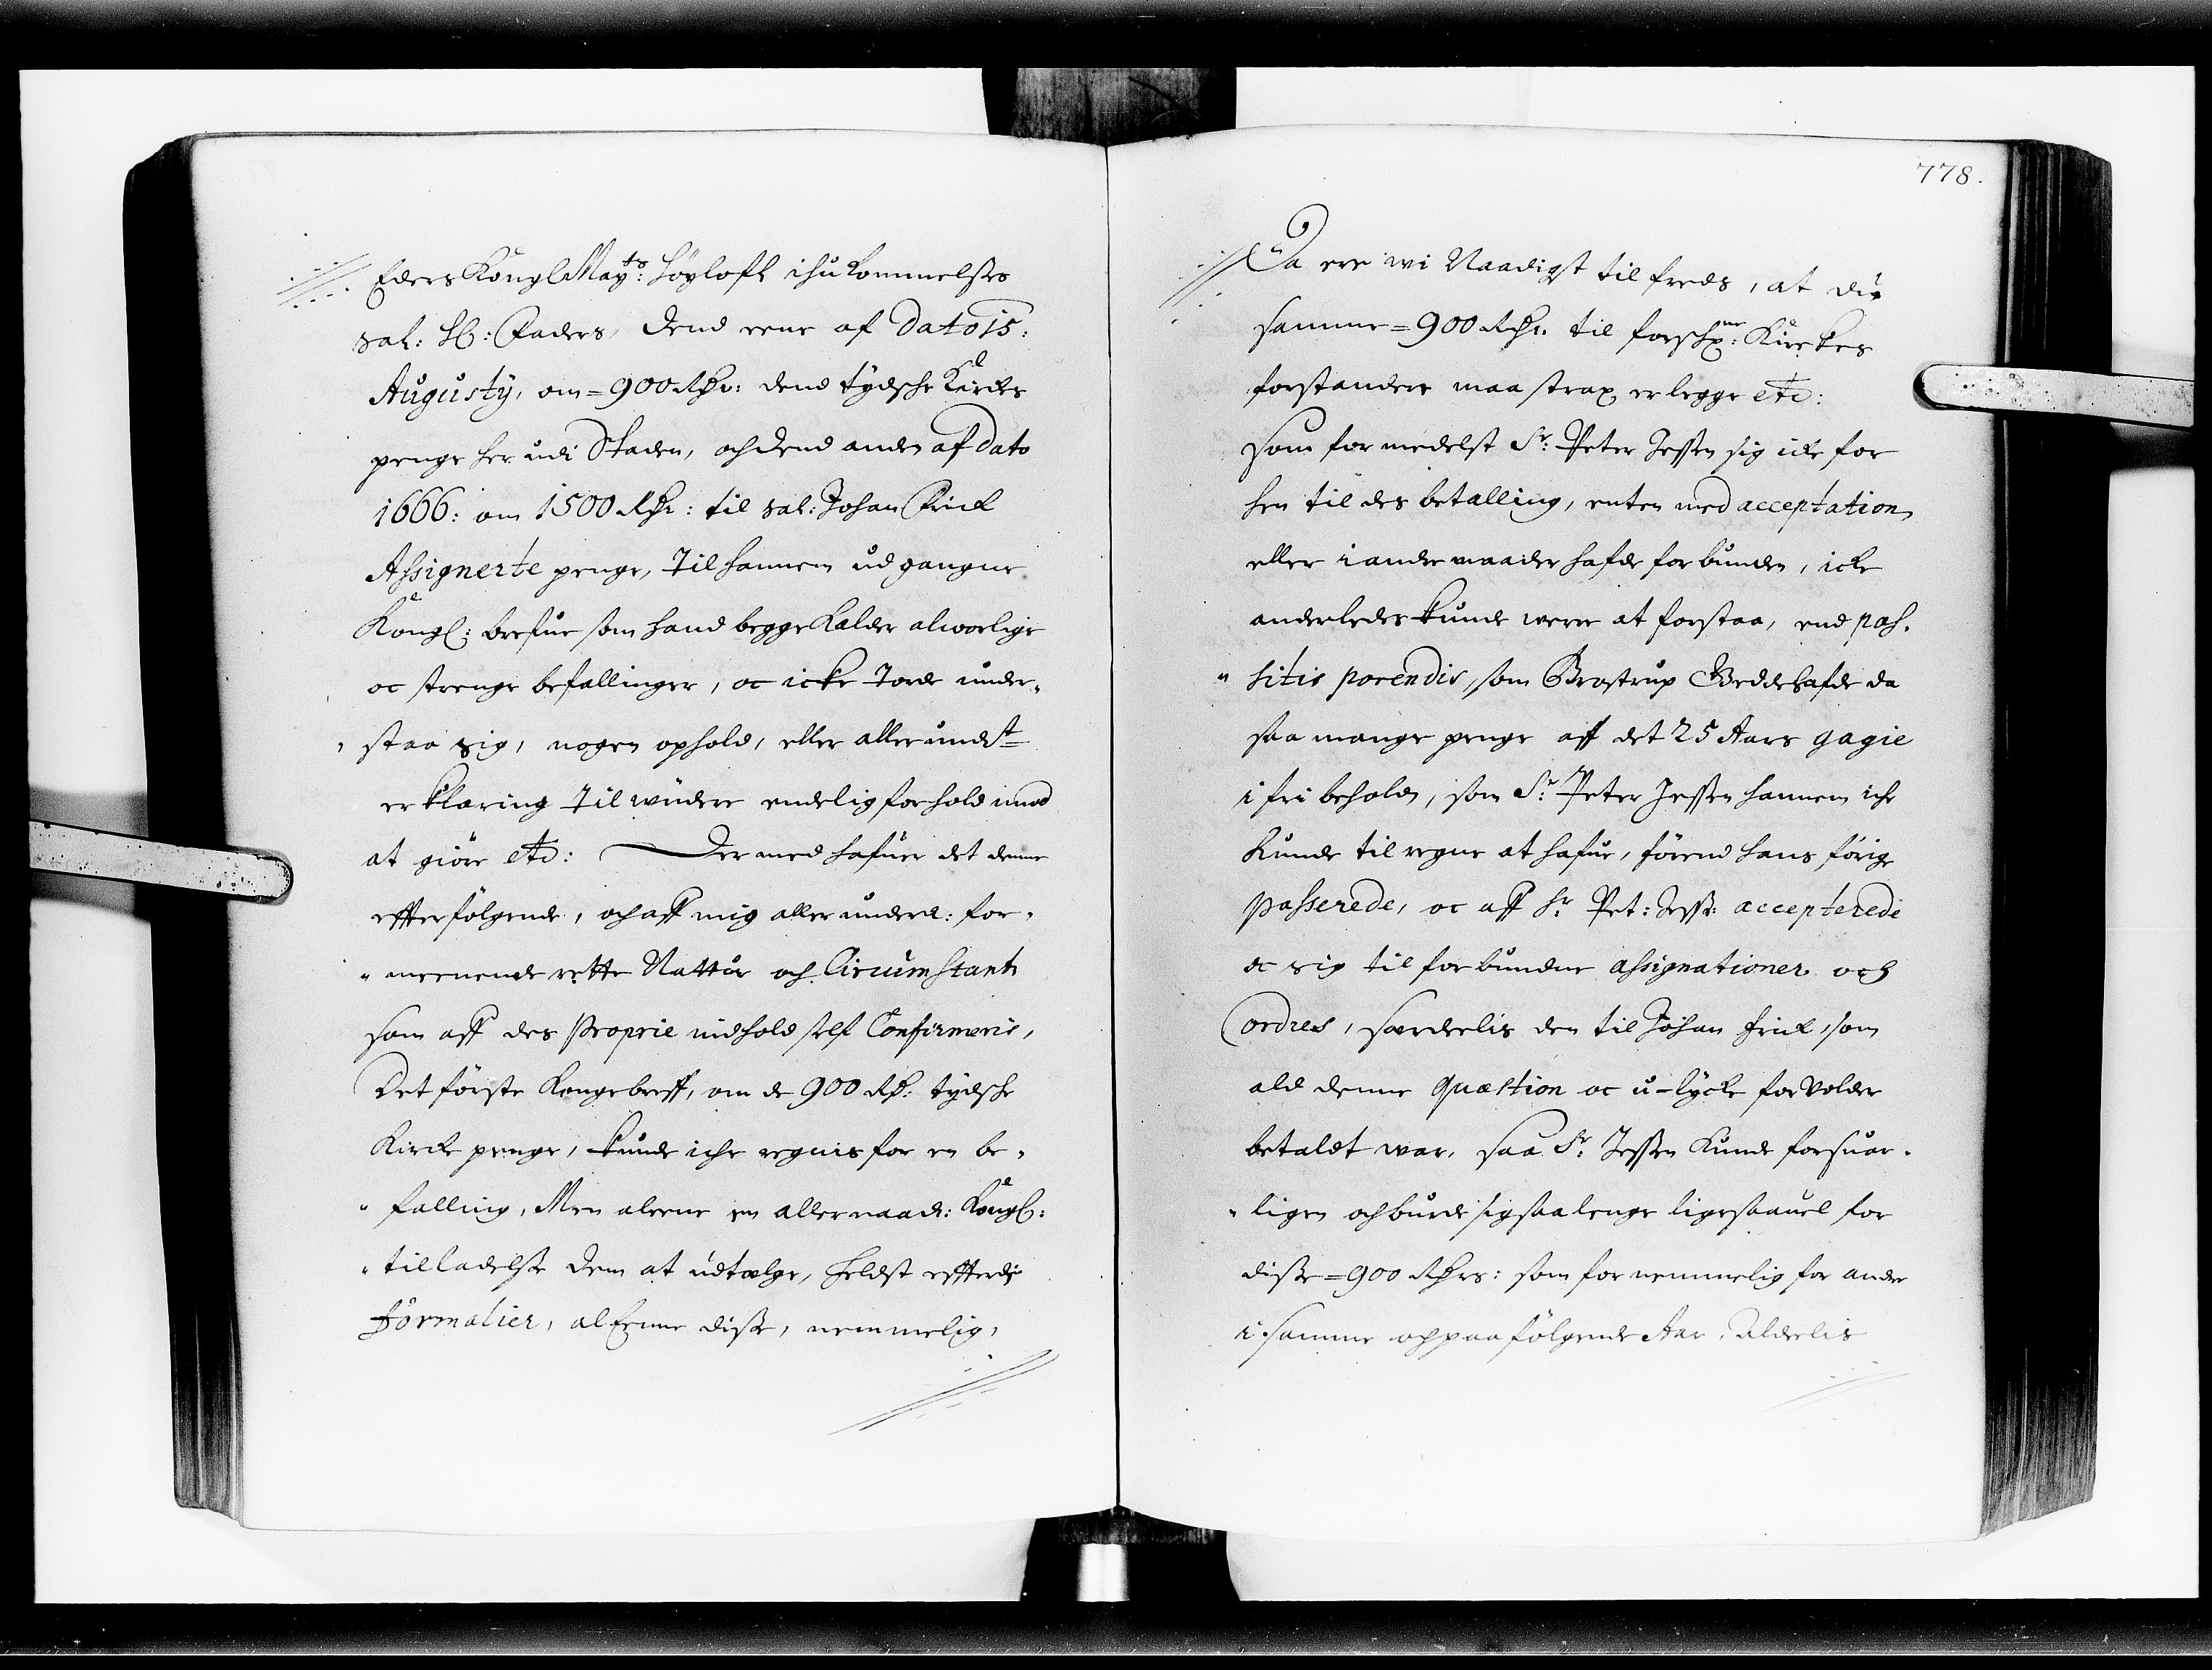 778.
Eders Kongl Mayts: høyloffl ihukommelses
sal: H: Faders, dend eene af Dato 15:
Augusty, om = 900 Rdr: dend tydsche Kirckes
penge her udi Staden, och dend anden af dato
1666: om 1500 Rdr: til Sal: Johan Frick
Assignerte penge, til hannem udgangne
Kongl: brefue som hand begge kalder alvorlige
oc strenge befallinger, oc icke torde under-
staa sig, nogen ophold, eller allerundst
erklæring til widere endelig forhold imod
at giøre etc: Dermed hafuer det denne
effterfølgende, och aff mig allerunderd: for-
meenende rette Nattur och Circumstants
som aff des Proprie indhold self Confirmeris,
Det første Kongebreff, om de 900 Rd: tydsche
Kircke penge, kunde iche regnis for en be-
falling, Men aleene en allernaad: Kongl:
tilladelse dem at udtælge, heldst effterdj
Formalier, al ene disse, nemmelig,
Da ere wi Naadigst tilfreds, at du
samme = 900 Rdr. til forschne: Kirckes
forstandere maa strax erlegge etc:
Som formedelst Sr: Peter Jessen sig icke for
hen til des betalling, enten med acceptation
eller i andre maader hafde forbunden, icke
anderledes kunde were at forstaa, end pos-
sitis ponendis, som Brostrup Gedde hafde da
saa mange penge aff det 25 Aars gagie
i fri behold, som Sr: Peter Jessen hannem iche
kunde til regne at hafue, førend hans førige
Passerede, oc aff Sr Pet: Jess: accepterede
oc sig til forbundne assignationer och
Cordres, særdeelis den til Johan Frick, som
ald denne Quæstion oc u-lycke forvolder
betaldt war, saa Sr: Jessen kunde forsuar-
ligen och burde sig saalenge ligesaauel for
disse = 900 Rdrs: som fornemmelig for andre
i samme och paafølgende Aar, Aldelis